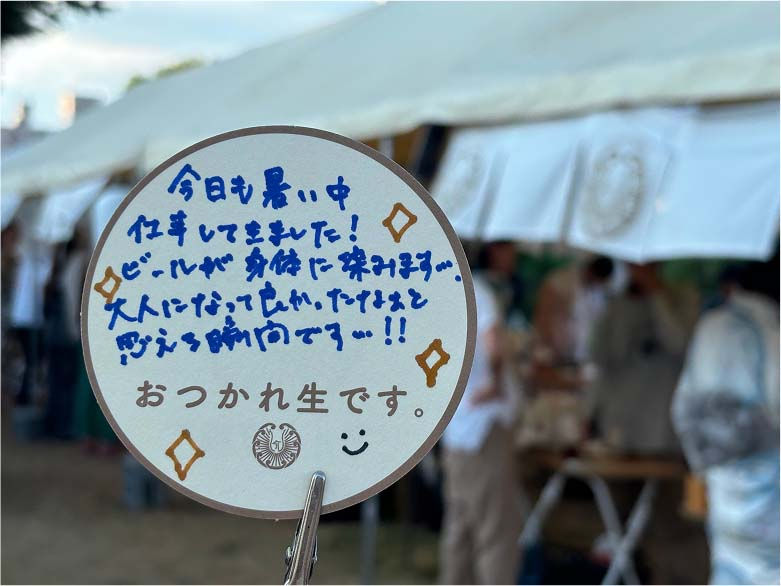 今日も暑い中
仕事して来ました!
ビールが身体に染みます….
大人になって良かったなぁと
思える瞬間です…!!
おつかれ生です。